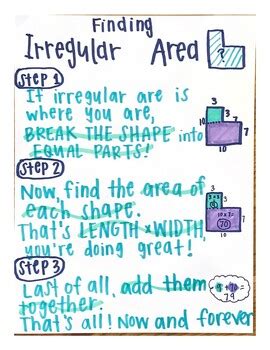 Finding
Irregular Area
?
Step 1
If irregular are is
where you are,
BREAK THE SHAPE into
EQUAL PARTS!
3
3
7
10
Step 2
Now, find the area of
each shape.
That's LENGTH × WIDTH,
you're doing great!
3
3
7
10
10 x 7 =
70
Step 3
Last of all, add them
together.
9 + 70 =
79
That's all! Now and forever